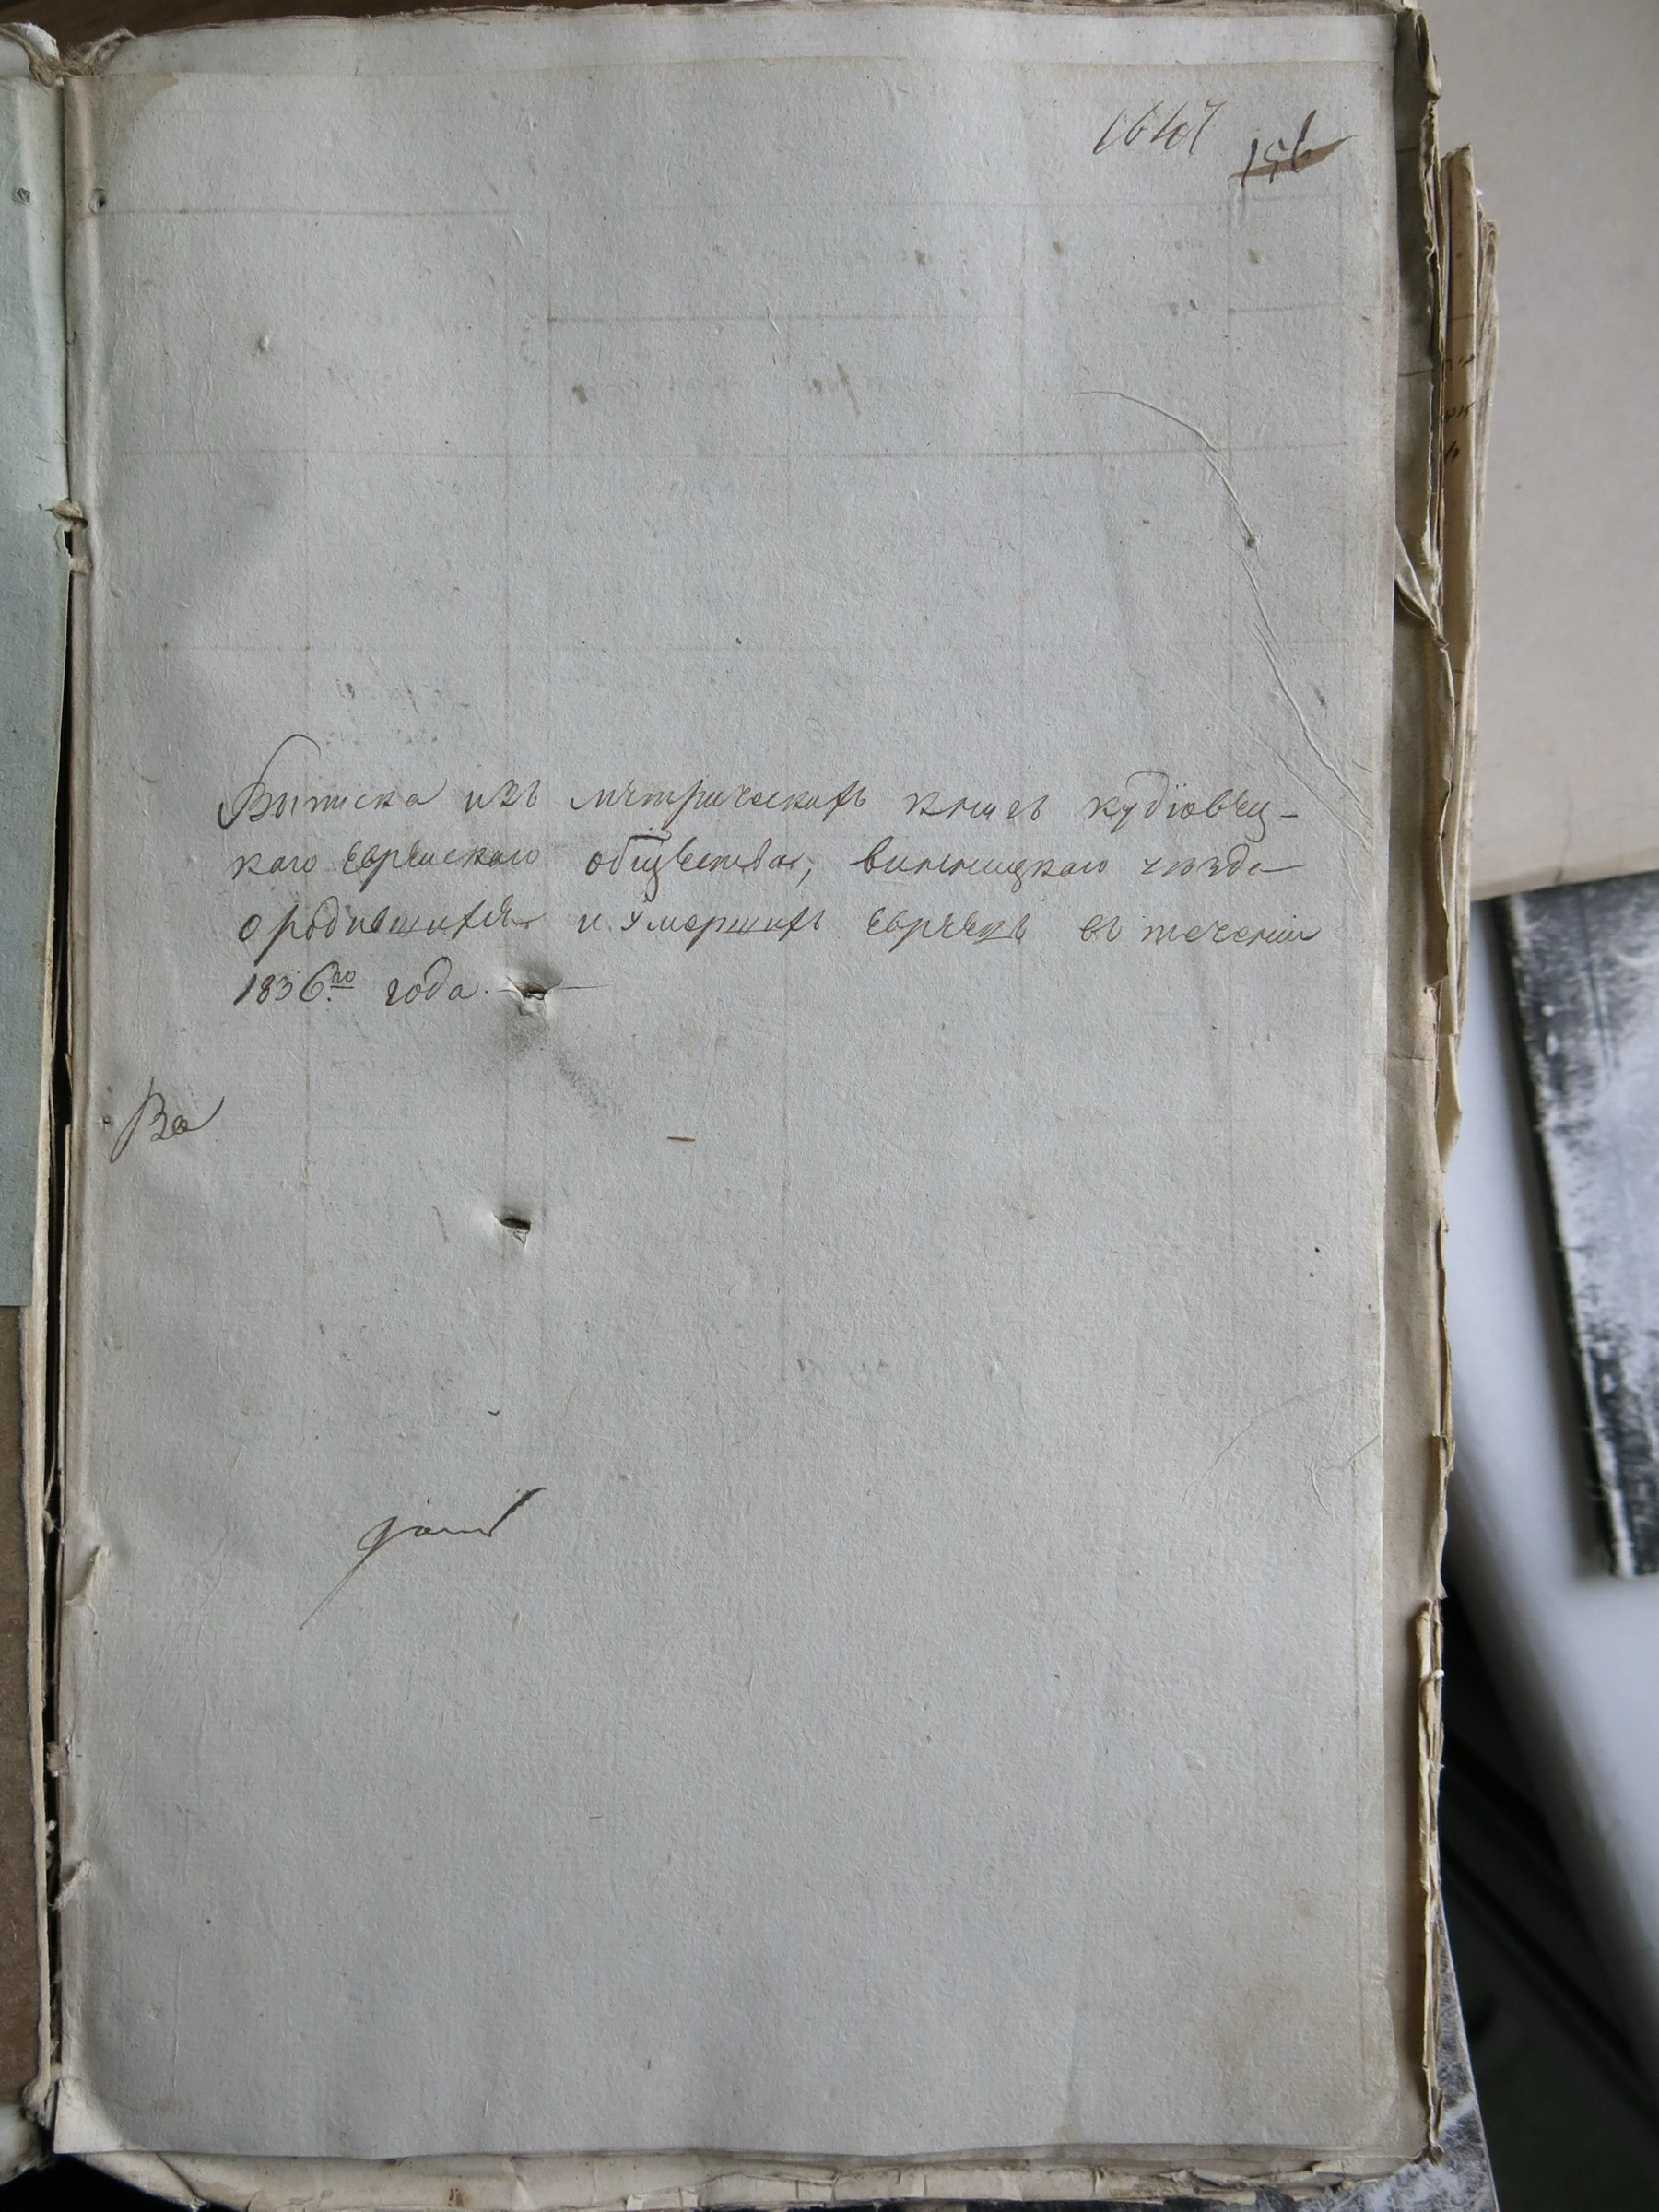 1647
156
Выписка изъ мѣтрическихъ книгъ кудіовѣц-
каго Еврѣискаго общѣства, винницкаго уѣзда
ородившихся и умершихъ Еврѣяхъ въ теченіи
1836го года.
Ва